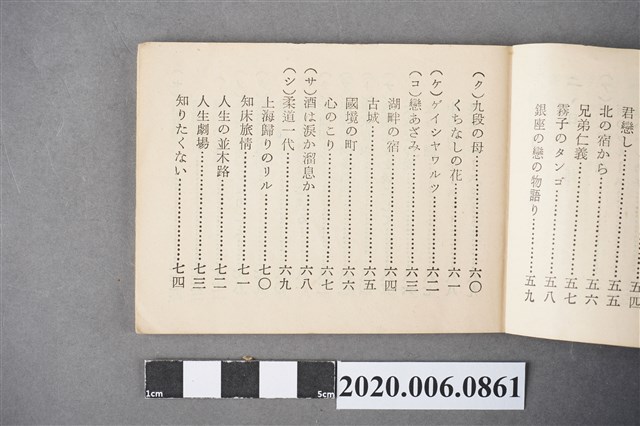 君戀し……五四
北の宿から……五五
兄弟仁義……五六
霧子のタンゴ……五七
銀座の戀の物語り……五八
五九
(ク)九段の母……六〇
くちなしの花……六一
(ケ)ゲイシヤワルツ……六二
(コ)戀あざみ……六三
湖畔の宿……六四
古城……六五
國境の町……六六
心のこり……六七
(サ)酒は淚か溜息か……六八
(シ)柔道一代……六九
上海歸りのリル……七〇
知床旅情……七一
人生の並木路……七二
人生劇場……七三
知りたくない……七四
1cm
5cm
2020.006.0861